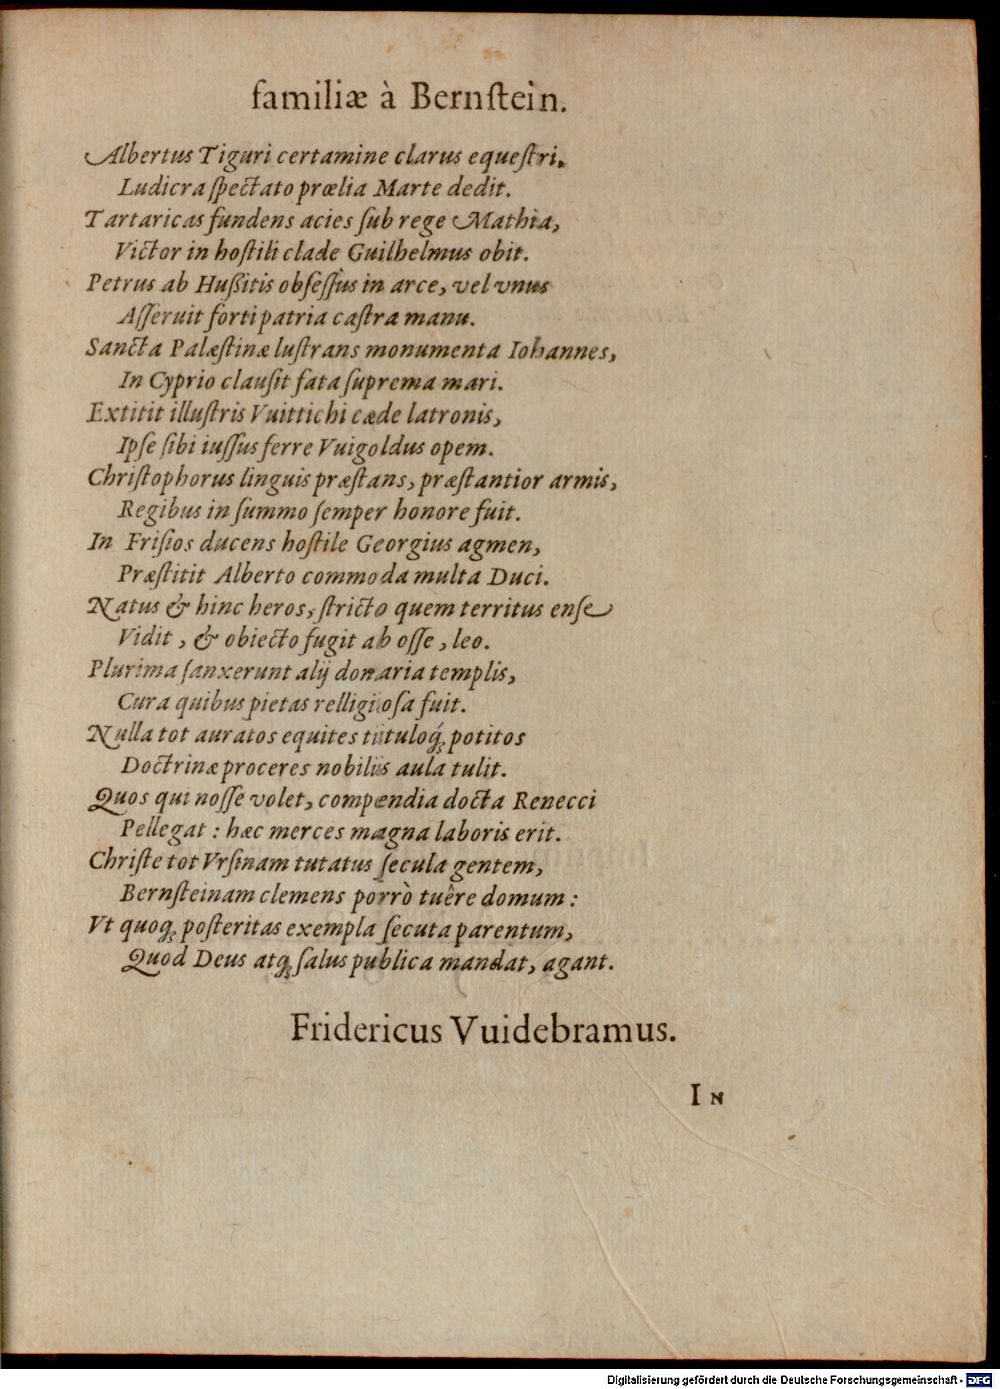 familiæ à Bernſtein.
Albertus Tiguri certamine clarus equeſtri,
Ludicra ſpectato prœlia Marte dedit.
Tartaricas fundens acies ſub rege Mathia,
Victor in hoſtili clade Guilhelmus obit.
Petrus ab Huſsitis obſeſſus in arce, vel vnus
Aſſeruit forti patria caſtra manu.
Sancta Palæſtinæ luſtrans monumenta Iohannes,
In Cyprio clauſit fata ſuprema mari.
Extitit illuſtris Vuittichi cæde latronis,
Ipſe ſibi iuſſus ferre Vuigoldus opem.
Chriſtophorus linguis præſtans, præſtantior armis,
Regibus in ſummo ſemper honore fuit.
In Friſios ducens hoſtile Georgius agmen,
Præſtitit Alberto commoda multa Duci.
Natus & hinc heros, ſtricto quem territus enſe
Vidit, & obiecto fugit ab oſſe, leo.
Plurima ſanxerunt alij donaria templis,
Cura quibus pietas relligioſa fuit.
Nulla tot auratos equites tituloq́; potitos
Doctrinæ proceres nobilis aula tulit.
Quos qui noſſe volet, compendia docta Renecci
Pellegat: hæc merces magna laboris erit.
Chriſte tot Vrſinam tutatus ſecula gentem,
Bernſteinam clemens porrò tuêre domum:
Vt quoq; poſteritas exempla ſecuta parentum,
Quod Deus atq; ſalus publica mandat, agant.
Fridericus Vuidebramus.
IN
Digitalisierung gefördert durch die Deutsche Forschungsgemeinschaft - DFG